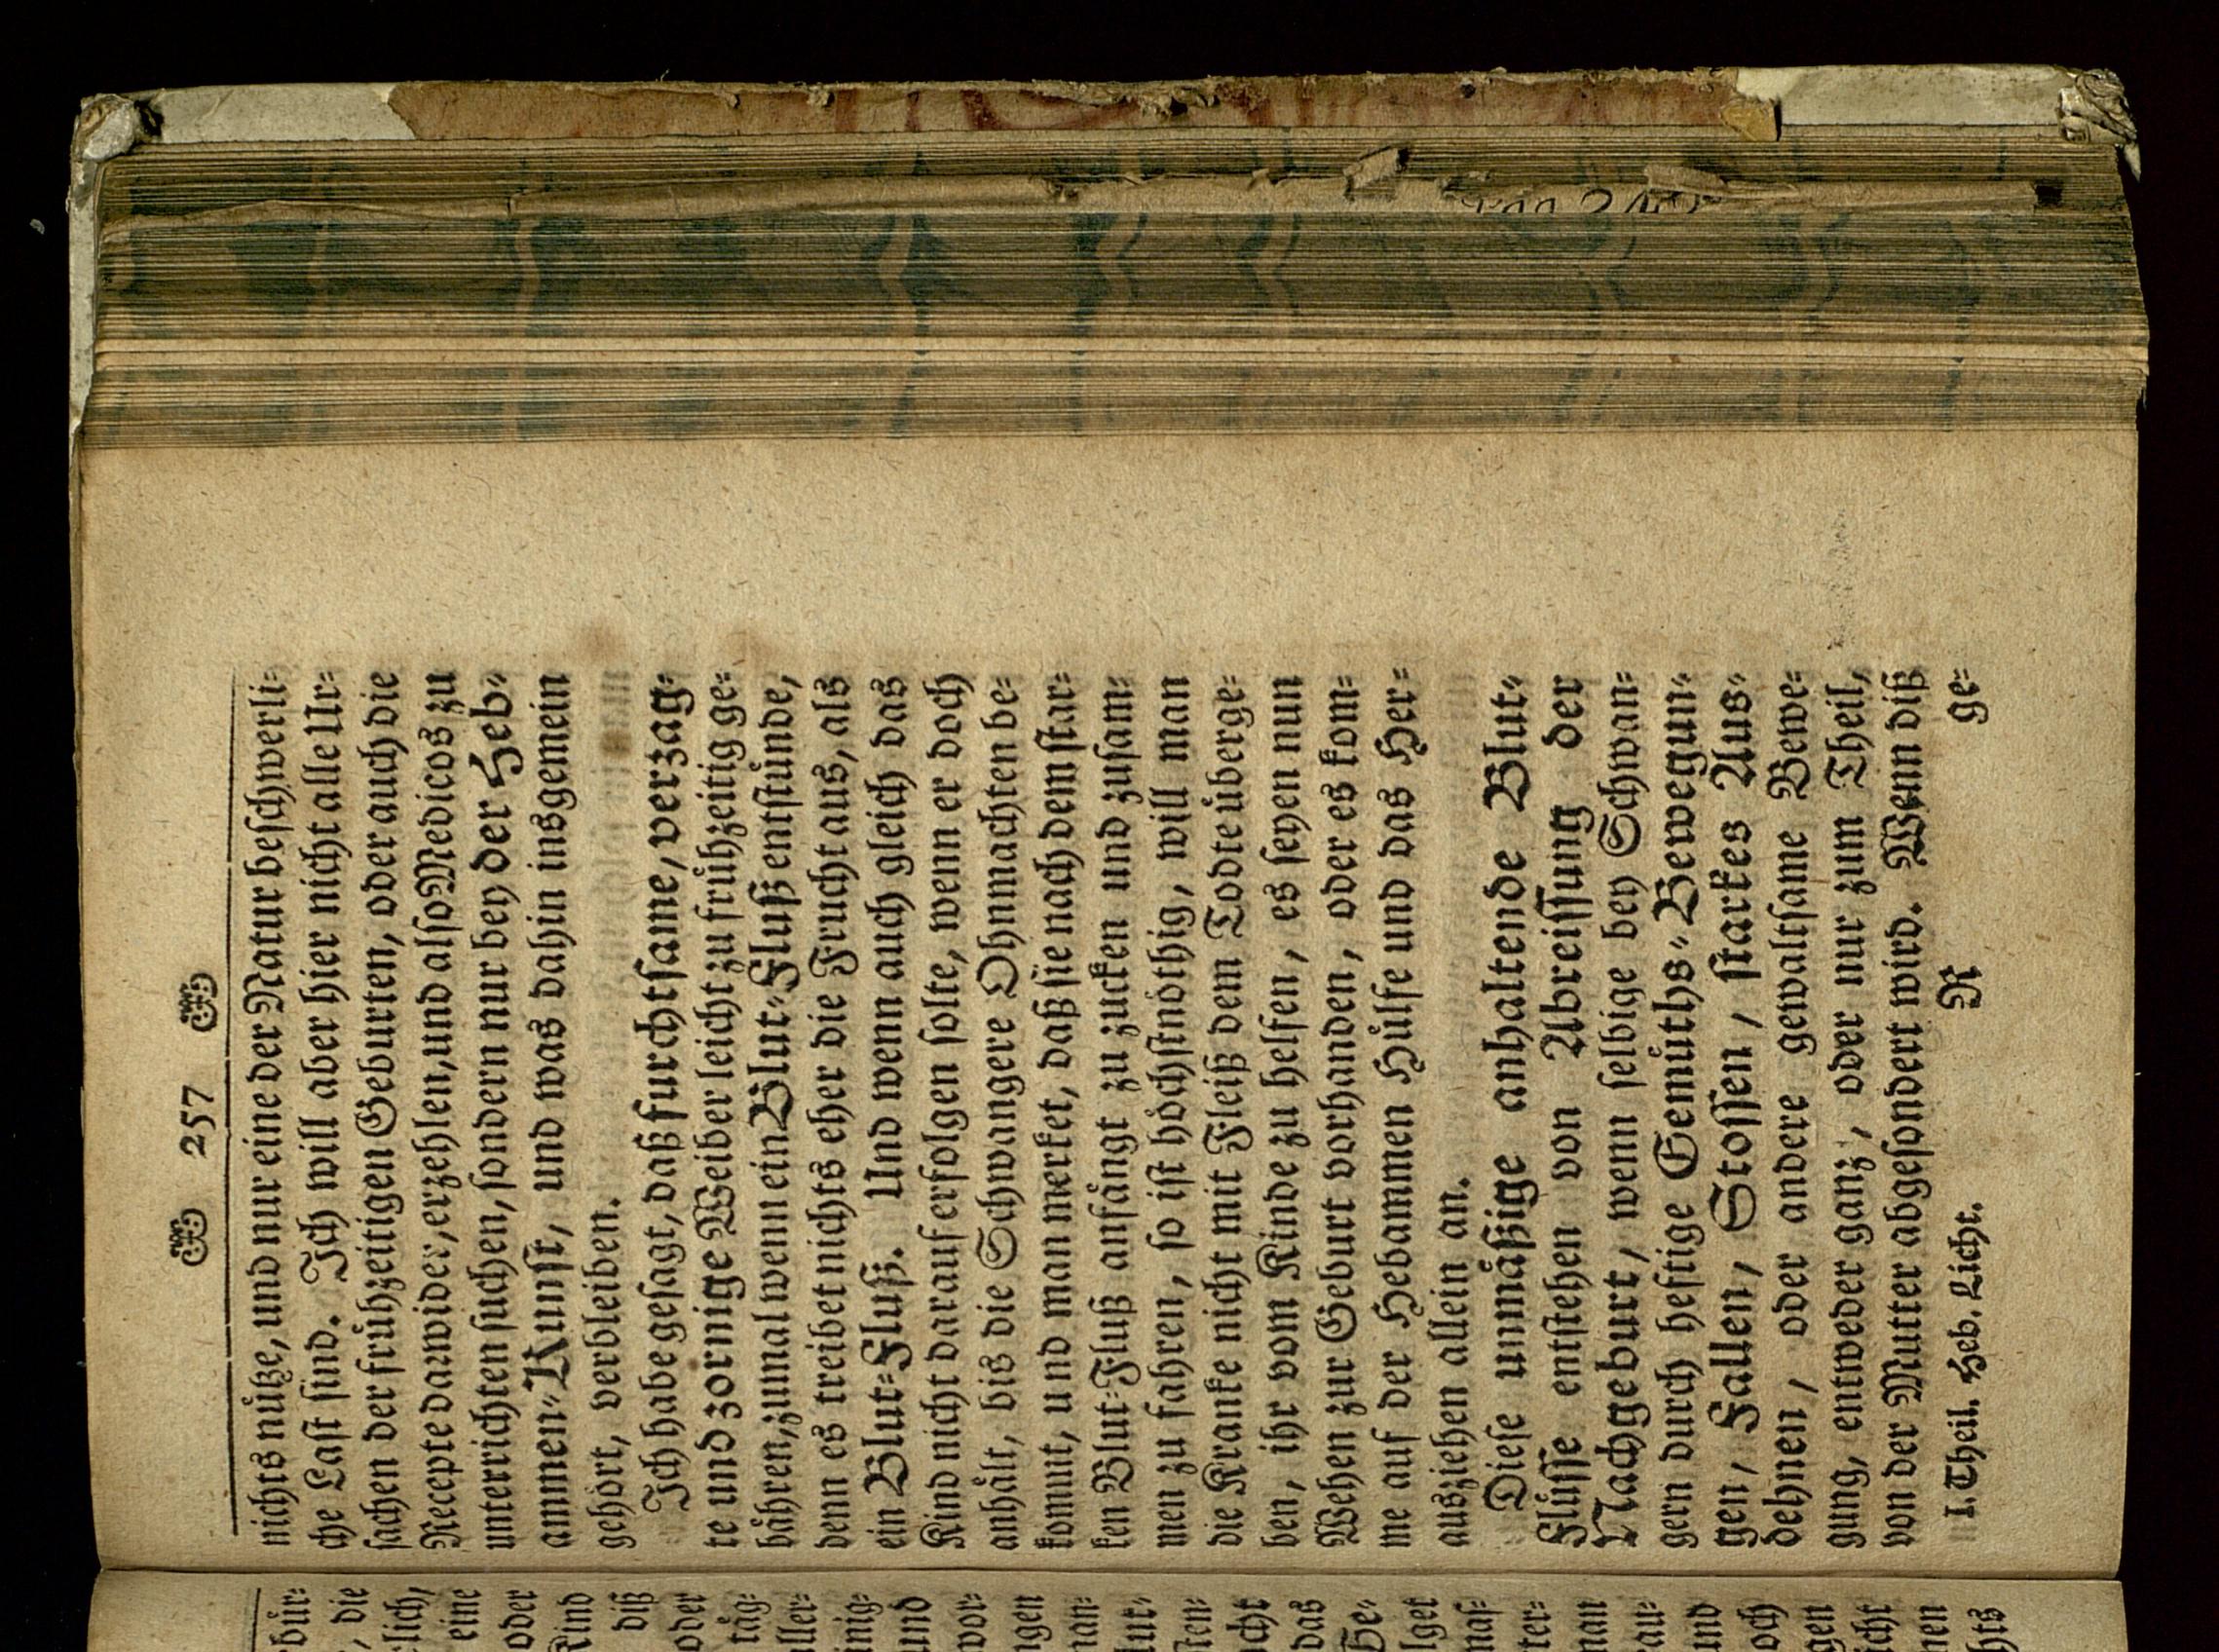 257
nichts nütze, und nur eine der Natur beschwerli-
che Last sind. Ich will aber hier nicht alle Ur-
sachen der frühzeitigen Geburten, oder auch die
Recepte darwider, erzehlen, und also Medicos zu
unterrichten suchen, sondern nur bey der Heb-
ammen-Kunst, und was dahin insgemein
gehört, verbleiben.
Ich habe gesagt, daß furchtsame, verzag-
te und zornige Weiber leicht zu frühzeitig ge-
bähren, zumal wenn ein Blut-Fluß entstünde,
denn es treibet nichts eher die Frucht aus, als
ein Blut-Fluß. Und wenn auch gleich das
Kind nicht darauf erfolgen solte, wenn er doch
anhält, bis die Schwangere Ohnmachten be-
kommt, und man merket, daß sie nach dem star-
ken Blut-Fluß anfängt zu zucken und zusam-
men zu fahren, so ist höchstnöthig, will man
die Kranke nicht mit Fleiß dem Todte überge-
ben, ihr vom Kinde zu helfen, es seyen nun
Wehen zur Geburt vorhanden, oder es kom-
me auf der Hebammen Hülfe und das Her-
ausziehen allein an.
Diese unmäßige anhaltende Blut-
Flüsse entstehen von Abreissung der
Nachgeburt, wenn selbige bey Schwan-
gern durch heftige Gemüths-Bewegun-
gen, Fallen, Stossen, starkes Aus-
dehnen, oder andere gewaltsame Bewe-
gung, entweder ganz, oder nur zum Theil,
von der Mutter abgesondert wird. Wenn diß
I. Theil. Heb. Licht. R ge-
bür-
die
lich,
eine
oder
Kind
diß
oder
täg-
aller-
inig-
und
vor-
ngen
nan-
lut-
sten-
cht
das
Ge-
lget
mas-
ter-
man
rau-
und
och
gen
icht
nen
hts